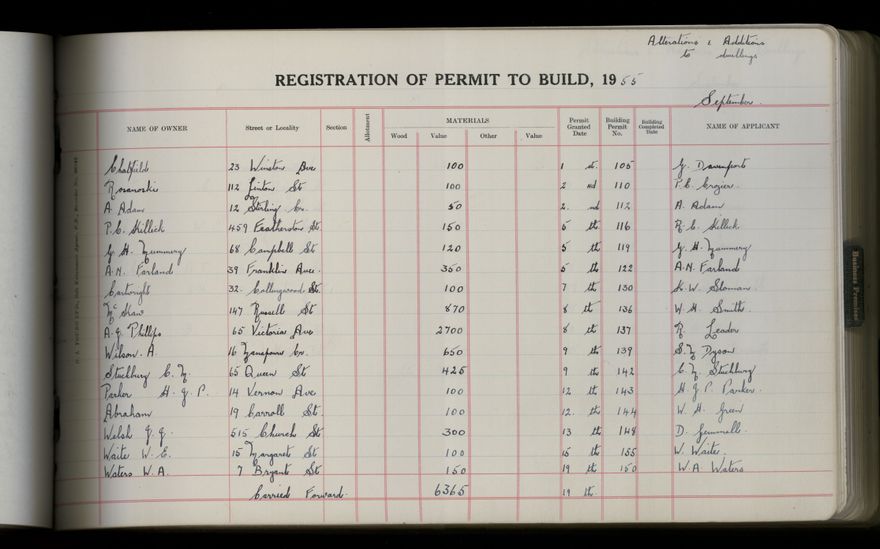 Alterations & Additions
to dwellings
REGISTRATION OF PERMIT TO BUILD, 1955
September.
NAME OF OWNER Street or Locality Section Allotment MATERIALS Wood Value Other Value Permit Granted Date Building Permit No. Building Completed Date NAME OF APPLICANT
Chatfield 23 Winston Ave 100 1 st. 105 G. Davenport
Rosanoski 112 Linton St 100 2 nd 110 P.C. Crozier.
A. Adam 12 Stirling Cr. 50 2. nd 112 A. Adam
P.C. Skillick 459 Featherston St. 150 5 th 116 P.C. Skillick
G. H. 68 Campbell St 120 5 th 119 G. H.
A.N. Farland 39 Franklin Ave. 350 5 th 122 A.N. Farland
Cartwright 32. Collingwood St. 100 7 th 130 K.W. Sloman
McShaw 147 Russell St 870 8 th 136 W. H. Smith.
A.J. Phillips 65 Victoria Ave 2700 8 th 137 R. Leader
Wilson. A. 16 Cr. 650 9 th 139 S.F. Dyson
Stuchbury C. F. 65 Queen St 425 9 th 142 C.F. Stuchbury
Parker H. J. P. 14 Vernon Ave 100 12 th 143 H. J. P. Parker.
Abraham 19 Carroll St. 100 12. th 144 W. H. Green
Welsh J. J. 515 Church St 300 13 th 148 D. Gemmell.
Waite W. E. 15 Margaret St 100 15 th 155 W. Waite.
Waters W.A. 7 Bryant St 150 19 th 150 W.A Waters
Carried Forward. 6365 19 th.
Business Premises